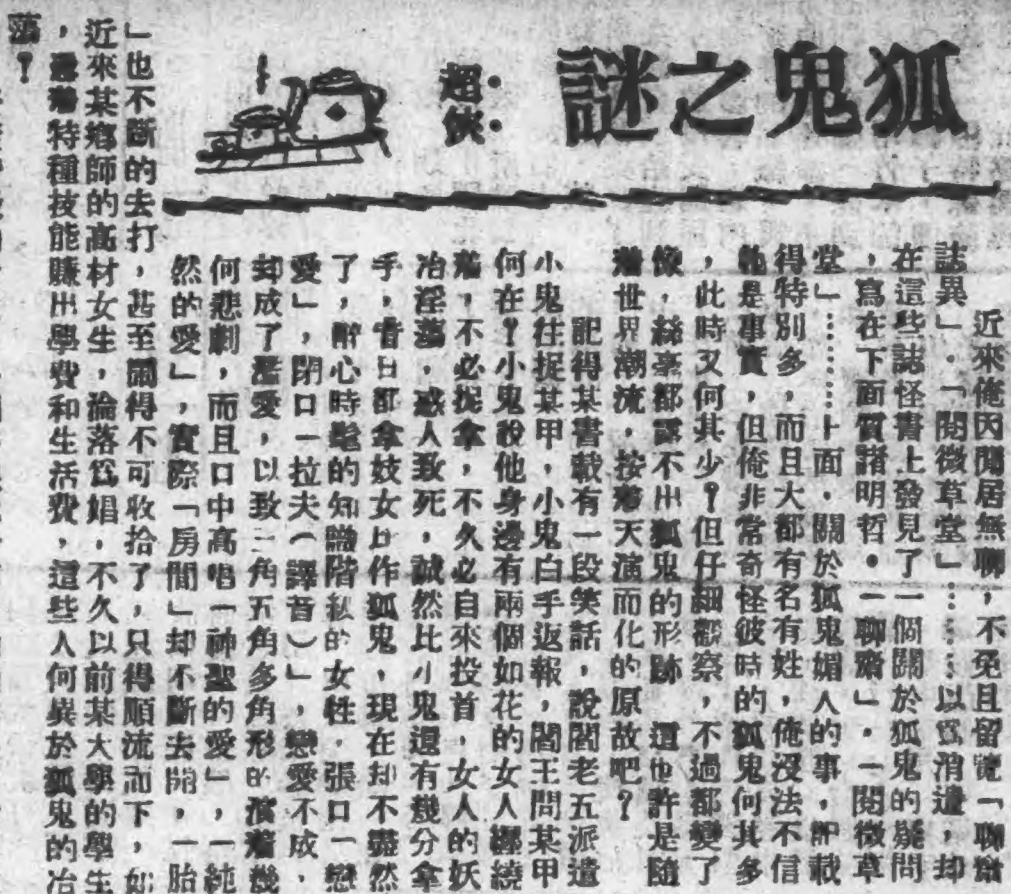 狐鬼之謎
超俠
近來俺因閒居無聊，不免且留覽「聊齋
誌異」．「閱微草堂」………以爲消遣，却
在這些誌怪書上發見了一個關於狐鬼的疑問
，寫在下面質諸明哲。「聊齋」．「閱微草
堂」………上面．關於狐鬼媚人的事，記載
得特別多，而且大都有名有姓，俺沒法不信
牠是事實，但俺非常奇怪彼時的狐鬼何其多
，此時又何其少？但仔細觀察，不過都變了
像，絲毫都露不出狐鬼的形跡　這也許是隨
着世界潮流，按着天演而化的原故吧？
記得某書載有一段笑話，說閻老五派遣
小鬼往捉某甲，小鬼白手返報，閻王問某甲
何在？小鬼說他身邊有兩個如花的女人纏繞
着，不必捉拿，不久必自來投首，女人的妖
冶淫蕩，惑人致死，誠然比小鬼還有幾分拿
手，昔日都拿妓女比作狐鬼，現在却不盡然
了，醉心時髦的知識階級的女性．張口一戀
愛」，閉口一拉夫（譯音）」，戀愛不成．
却成了濫愛，以致三角五角多角形的演着幾
何悲劇，而且口中高唱「神聖的愛」，「純
然的愛」，實際「房間」却不斷去開，「胎
」也不斷的去打，甚至鬧得不可收拾了，只得順流而下，如
近來某鄉師的高材女生，淪落爲娼，不久以前某大學的學生
，憑着特種技能賺出學費和生活費，這些人何異於狐鬼的冶
蕩？